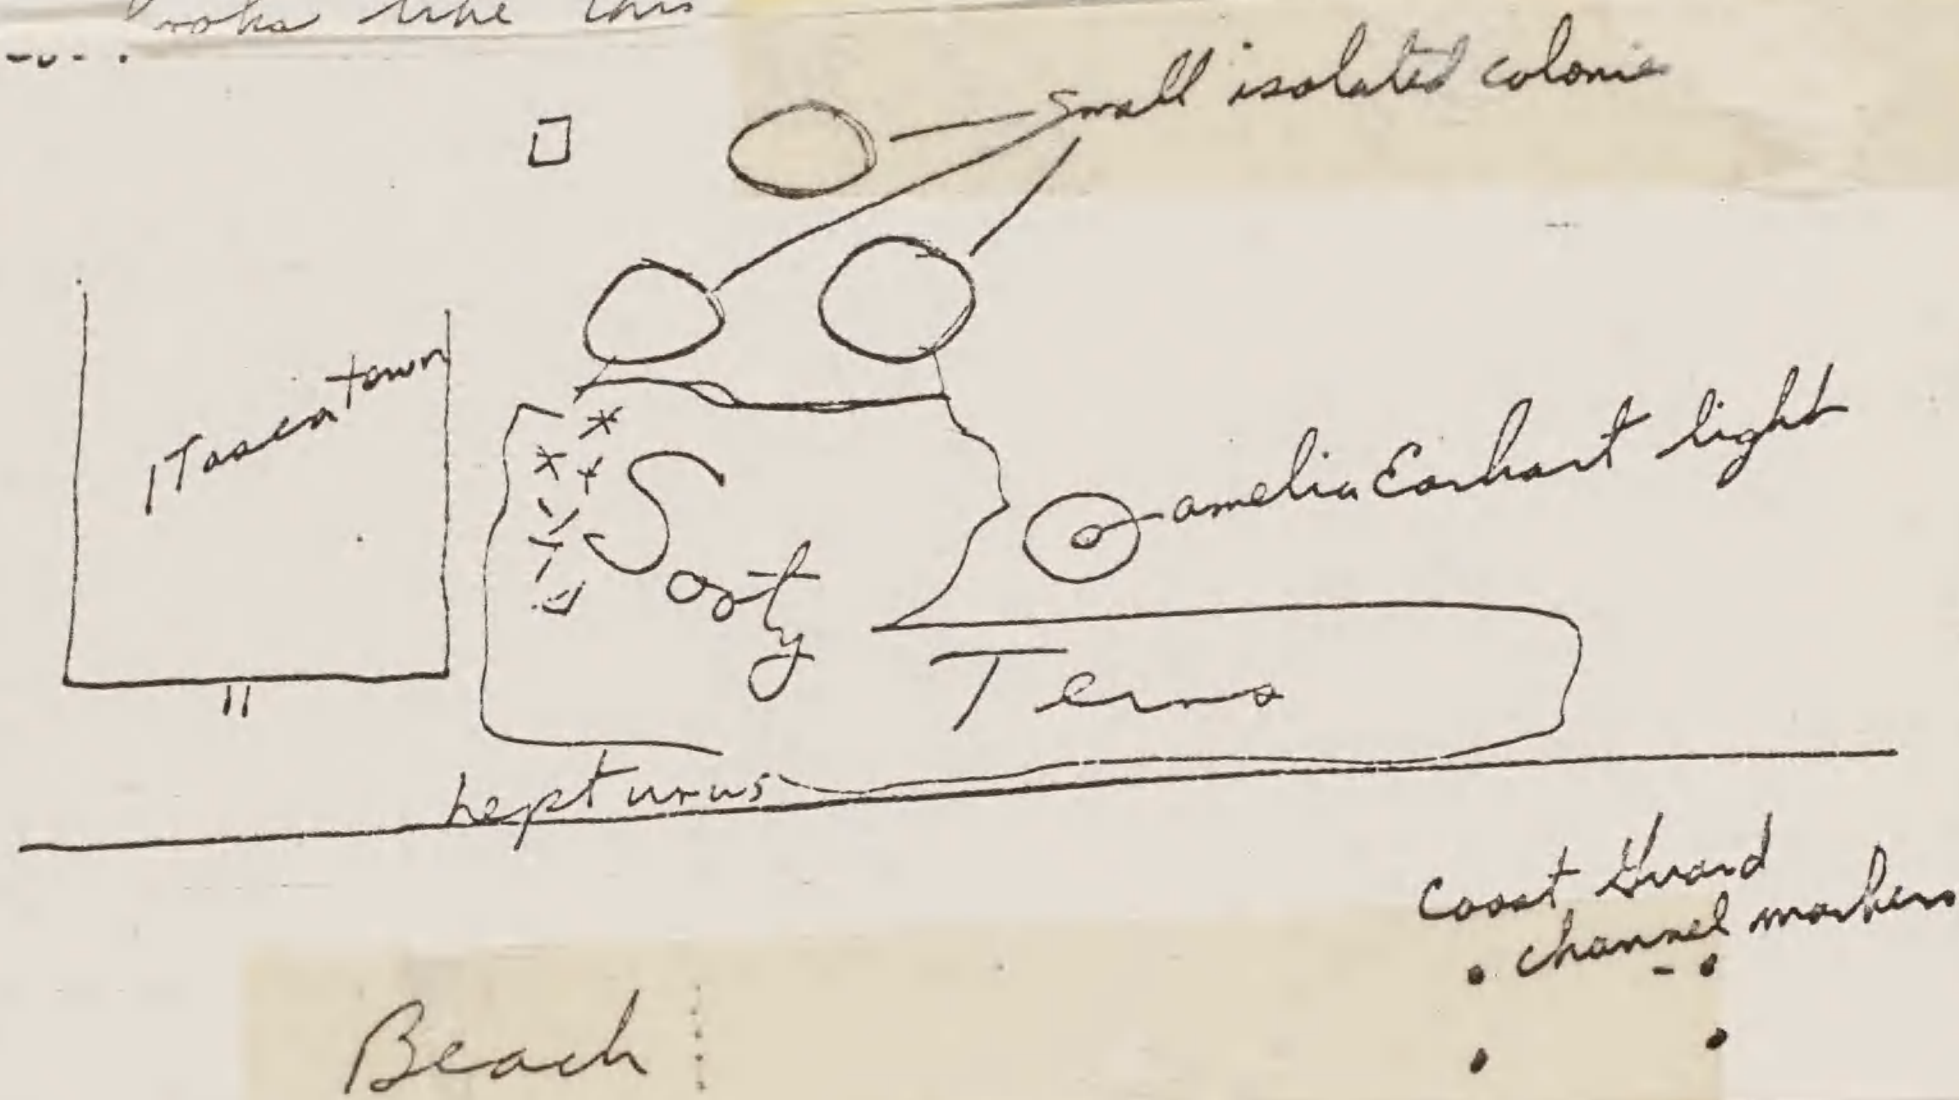 looks like this
Small isolated colonie
Itascatown
Amelia Earhart light
Sooty
Terns
Lepturus
Coast Guard
channel markers
Beach